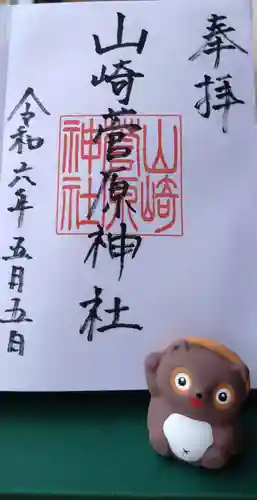 奉拝
山崎菅原神社
山崎
菅原
神社
令和六年五月五日